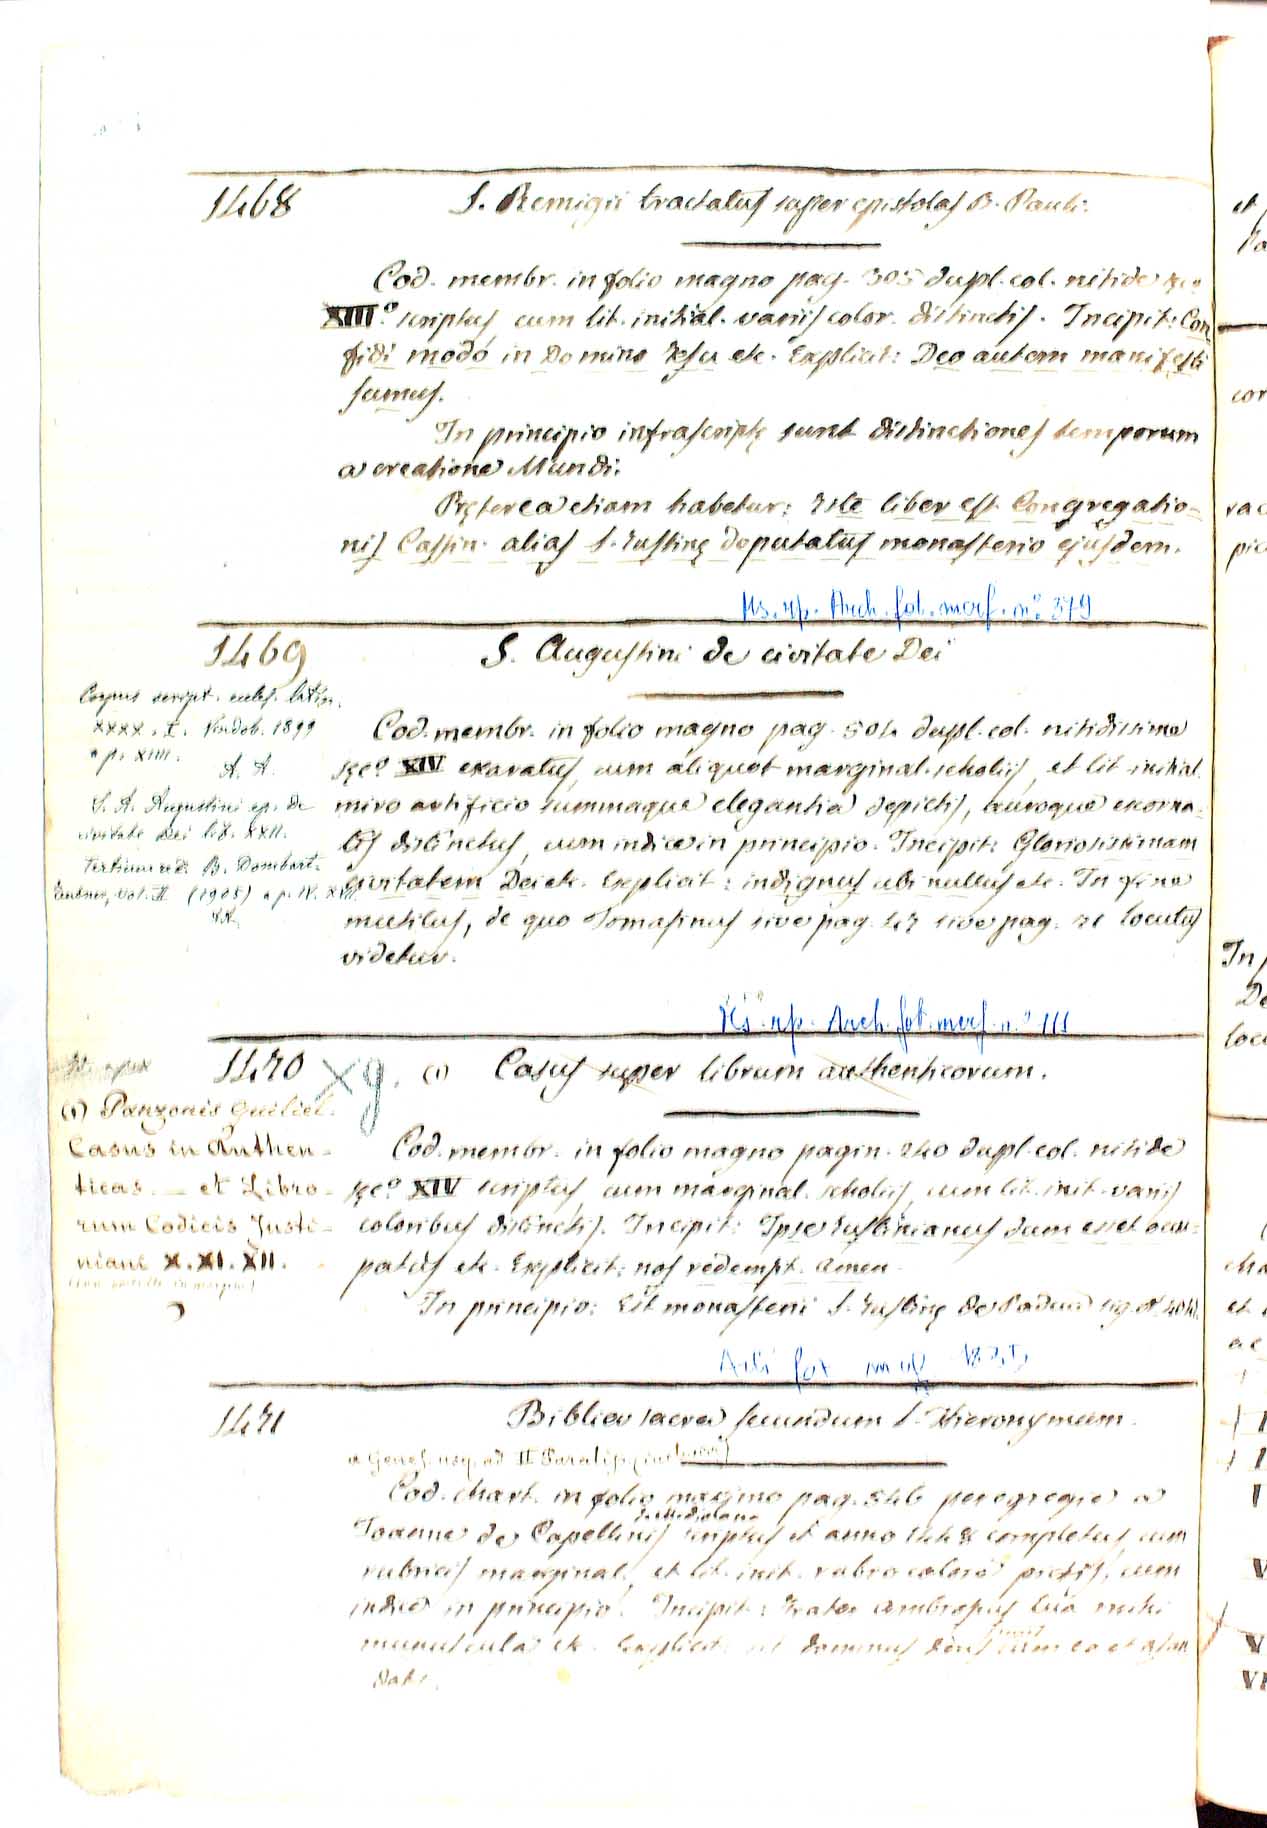 1468 S. Remigii tractatus super epistolas B. Pauli.
Cod. membr. in folio magno pag. 305 dupl. col. nitide sęc.
XIII.º scriptus cum lit. initial. variis color. distinctis. Incipit: Con
fidi modo in Domino Jesu etc. Explicit: Deo autem manifesti
sumus.
In principio infrascriptę sunt distinctiones temporum
a creatione Mundi.
Pręterea etiam habetur: Iste liber est Congregatio=
nis Cassin. alias S. Justinę deputatus monasterio ejusdem.
Ms. rip. Arch. fot. marf. nº 379
1469 S. Augustini de civitate Dei
Corpus script. eccles. latin.
XXXX. I. Vindob. 1899
a p. XIIII.
A. A.
S. A. Augustini ep. de
civitate Dei lib. XXII.
tertium ed. B. Dombart.
Teubner, Vol. II (1905) a p. IV. XVII.
A.A.
Cod. membr. in folio magno pag. 504 dupl. col. nitidissime
sęcº XIV exaratus, cum aliquot marginal. scholiis, et lit. initial.
miro artificio summaque elegantia depictis, auroque exorna-
tis distinctus, cum indice in principio. Incipit: Gloriosissimam
civitatem Dei etc. Explicit: indignus ubi nullus etc. In fine
mutilus, de quo Tomasinus sive pag. 47 sive pag. 21 locutus
videtur.
Ms. rip. Arch. fot. marf. nº 111
1470 Xg. (1) Casus super librum authenticorum.
(1) Panzonis Guiliel.
Casus in Authen-
ticas — et Libro-
rum Codicis Justi-
niani X. XI. XII.
Cod. membr. in folio magno pagin. 240 dupl. col. nitide
sęcº XIV scriptus, cum marginal. scholiis, cum lit. init. variis
coloribus distinctis. Incipit: Ipse Justinianus dum esset occu=
patus etc. Explicit: nos redempt. amen.
In principio: Est monasterii S. Justinę de Padua sig.
1471 Biblia sacra secundum S. Hieronymum.
a Genes. usq. ad II Paralip. (inclusive)
Cod. chart. in folio maximo pag. 546 peregregie a
de Mediolano
Joanne de Capellinis scriptus et anno 1448 completus, cum
rubricis marginal., et lit. init. rubro colore pictis, cum
indice in principio. Incipit: Frater Ambrosius tua mihi
munuscula etc. Explicit: sit dominus deus suus cum eo et ascen
dat.